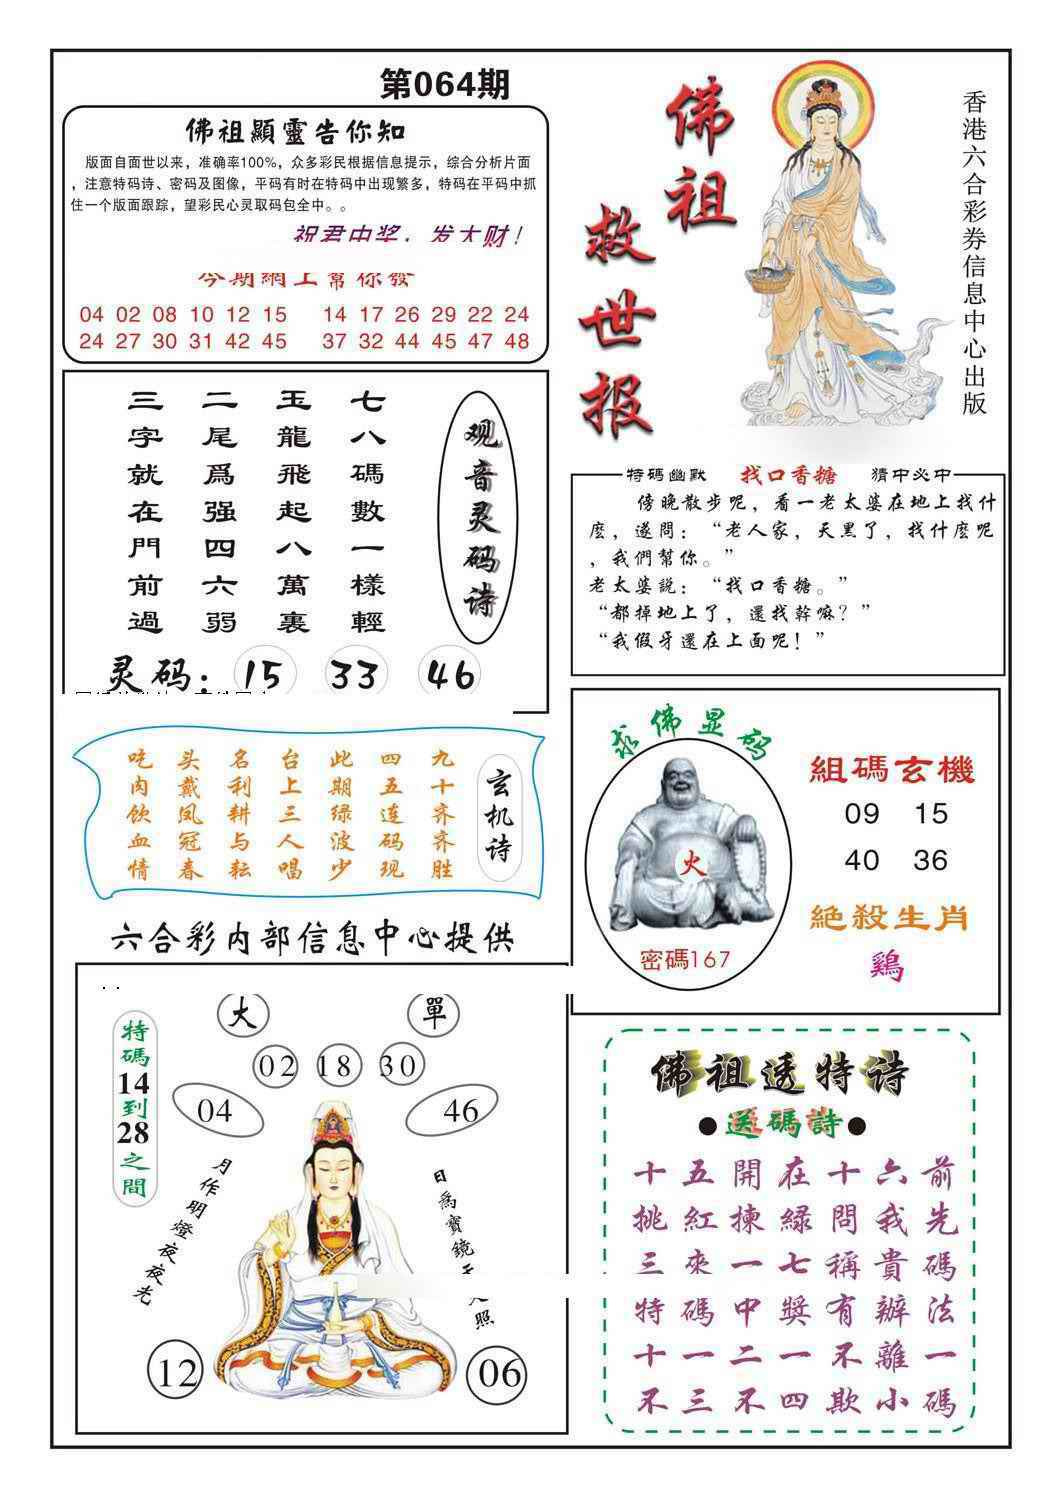 第064期
佛祖顯靈告你知
版面自面世以来，准确率100%，众多彩民根据信息提示，综合分析片面
，注意特码诗、密码及图像，平码有时在特码中出现繁多，特码在平码中抓
住一个版面跟踪，望彩民心灵取码包全中。。
祝君中奖，发大财！
今期網上幫你發
04 02 08 10 12 15 14 17 26 29 22 24
24 27 30 31 42 45 37 32 44 45 47 48
佛祖
救世报
香港六合彩券信息中心出版
观音灵码诗
七八碼數一樣輕
玉龍飛起八萬裏
二尾爲强四六弱
三字就在門前過
灵码：15 33 46
特碼幽默 找口香糖 猜中必中
傍晚散步呢，看一老太婆在地上找什
麽，遂問：“老人家，天黑了，找什麽呢
，我們幫你。”
老太婆説：“找口香糖。”
“都掉地上了，還找幹嘛？”
“我假牙還在上面呢！”
玄机诗
九十齐齐胜
四五连码现
此期绿波少
台上三人唱
名利耕与耘
头戴凤冠春
吃肉饮血情
求佛显码
火
密碼167
組碼玄機
09 15
40 36
絶殺生肖
鷄
六合彩内部信息中心提供
特碼14到28之間
大 單
02 18 30
04 46
月作明燈夜夜光
日爲寶鏡
照
12 06
佛祖透特诗
●送碼詩●
十五開在十六前
挑紅揀緑問我先
三來一七稱貴碼
特碼中獎有辦法
十一二一不離一
不三不四欺小碼